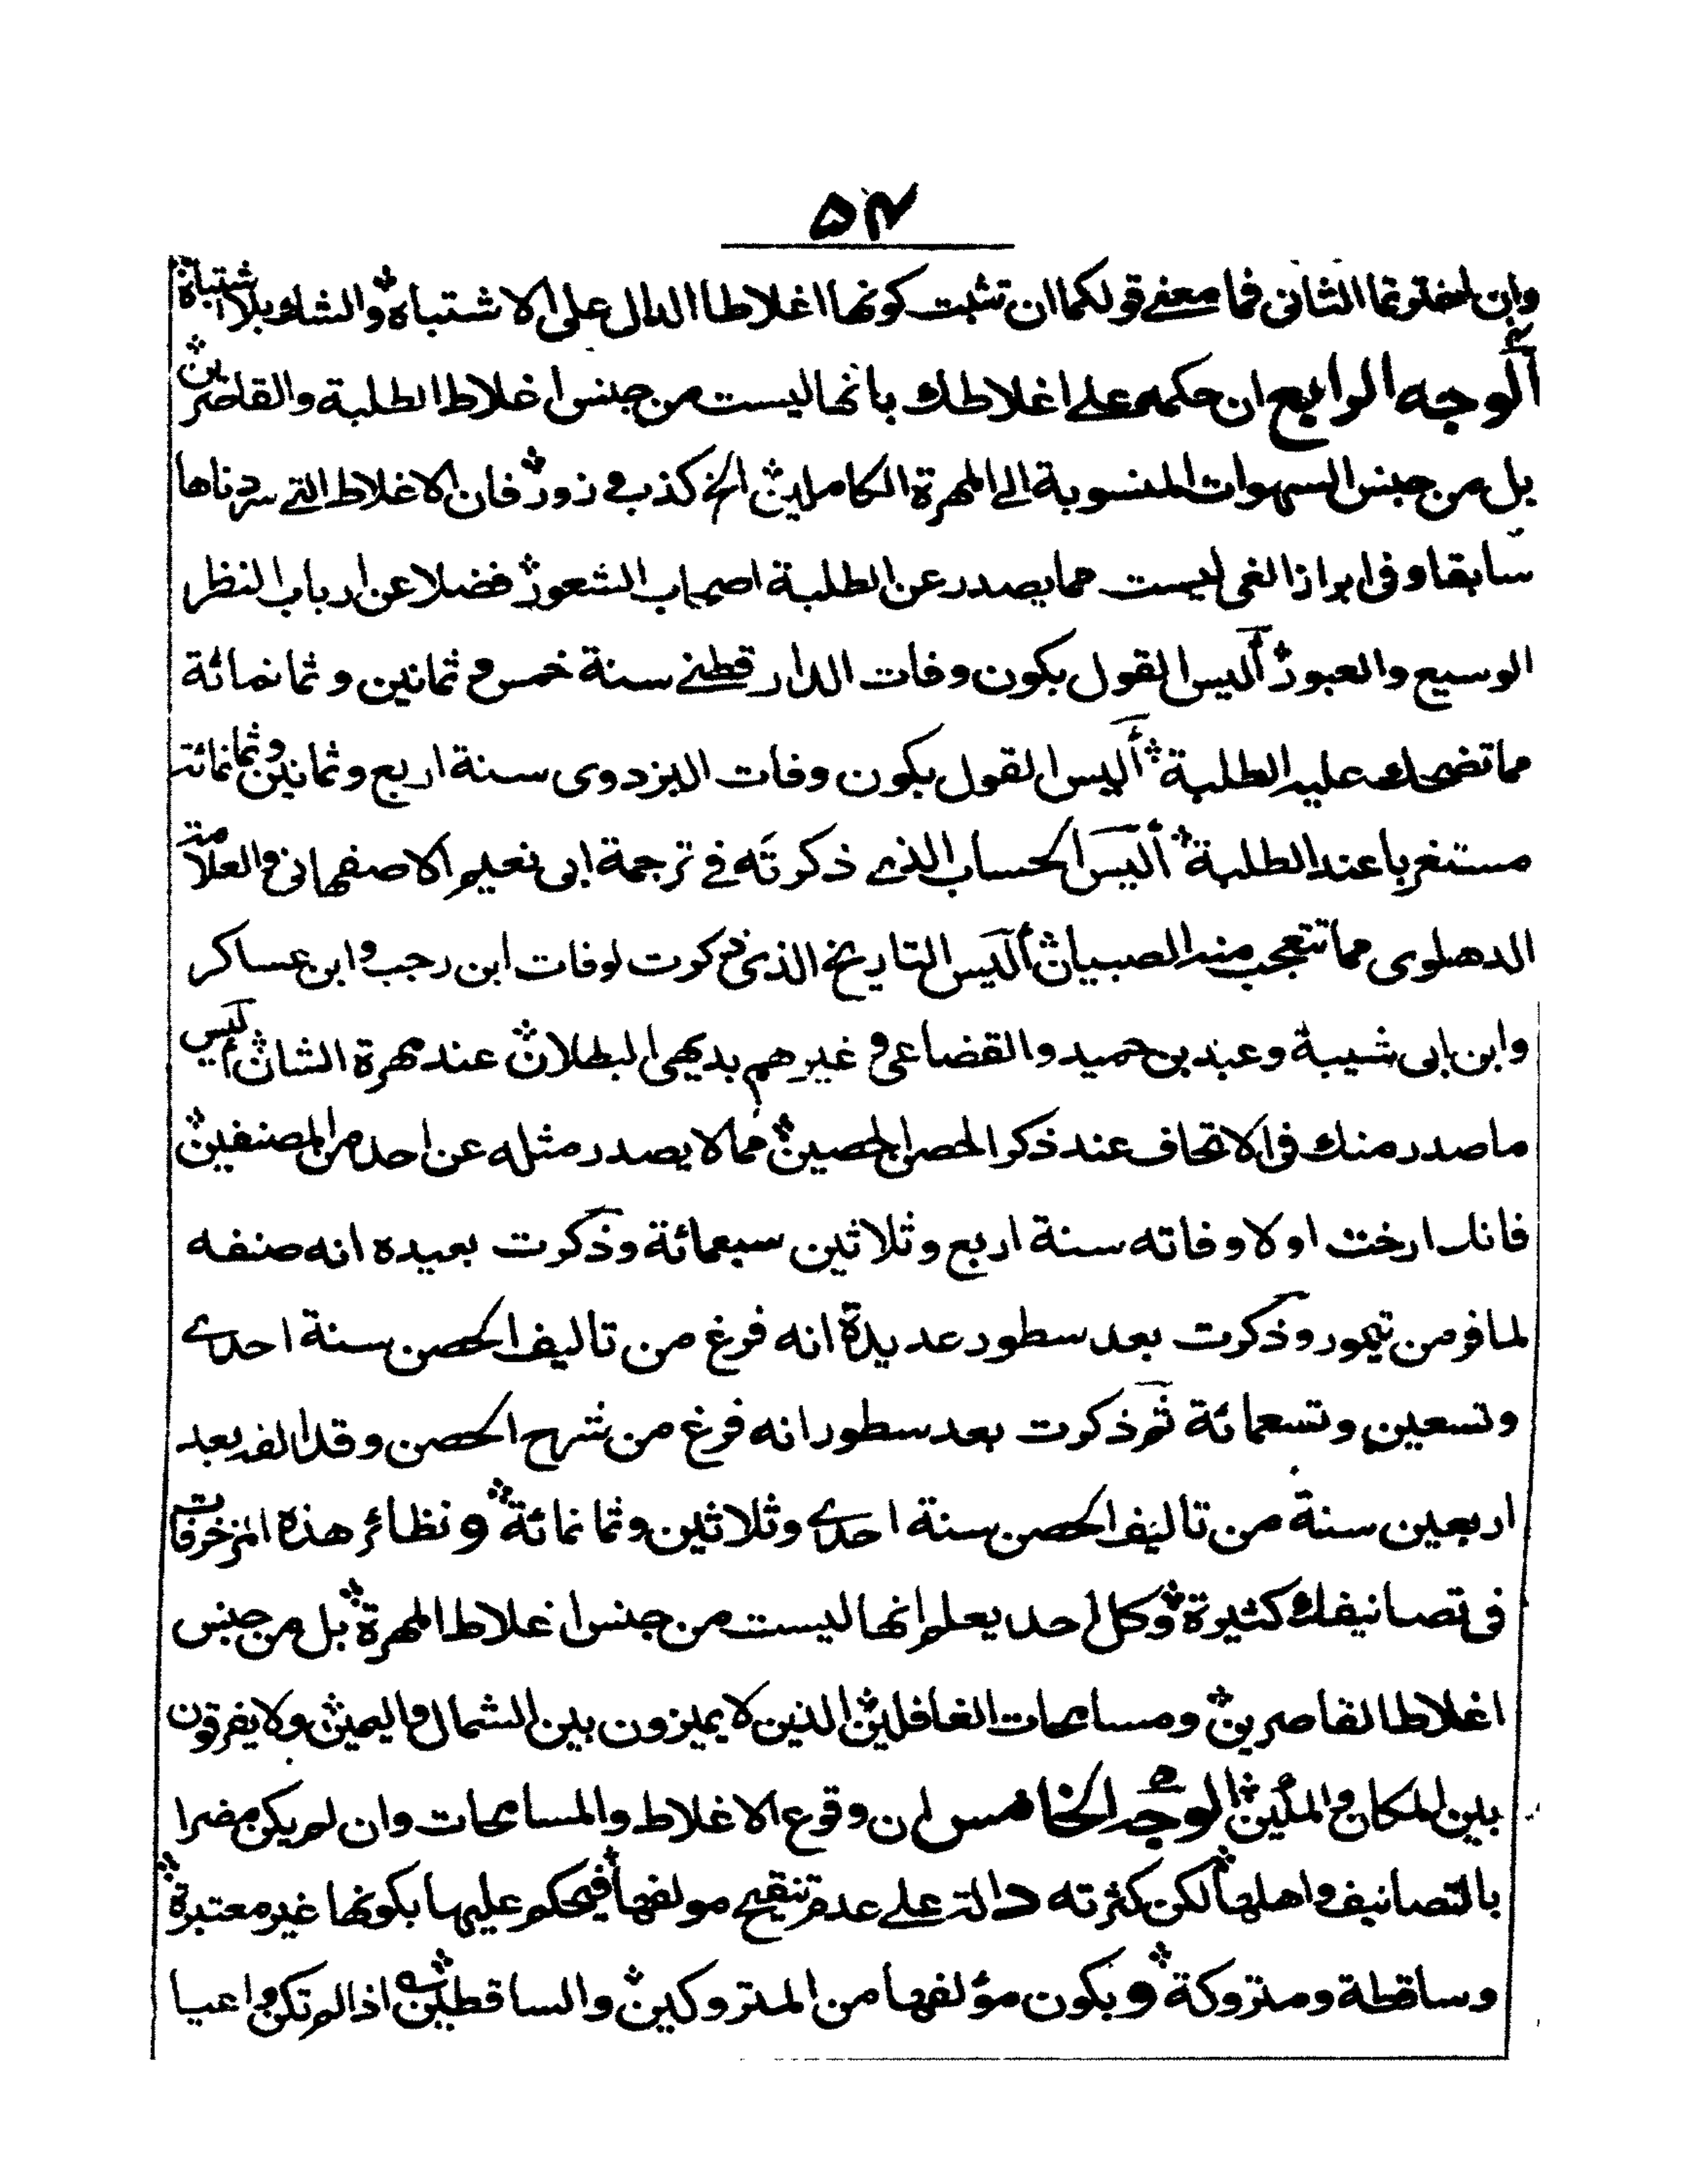 ۵۴
وان اخترتما الثانى فما معنى قولكما ان تثبت كونها اغلاطا الدال على الاشتباه والشك بلا اشتباه
الوجه الرابع ان حكمه على اغلاطك بانها ليست من جنس اغلاط الطلبة والقاصرين
بل من جنس السهوات المنسوبة الى المهرة الكاملين الخ كذب و زور فان الاغلاط التى سردناها
سابقا وفى ابراز الغى ليست مما يصدر عن الطلبة اصحاب الشعور فضلا عن ارباب النظر
الوسيع والعبور أليس القول بكون وفات الدارقطنى سنة خمس و ثمانين و ثمانمائة
مما تضحك عليه الطلبة أليس القول بكون وفات البزدوى سنة اربع وثمانين وثمانمائة
مستغربا عند الطلبة أليس الحساب الذى ذكرته فى ترجمة ابى نعيم الاصفهانى والعلامة
الدهلوى مما تتعجب منه الصبيان أليس التاريخ الذى ذكرت لوفات ابن رجب و ابن عساكر
وابن ابى شيبة وعبد بن حميد والقضاعى و غيرهم بديهى البطلان عند مهرة الشان أليس
ما صدر منك فى الاتحاف عند ذكر الحصن الحصين مما لا يصدر مثله عن احد من المصنفين
فانك ارخت اولا وفاته سنة اربع وثلاثين سبعمائة وذكرت بعيده انه صنفه
لما فر من تيمور وذكرت بعد سطور عديدة انه فرغ من تاليف الحصن سنة احدى
وتسعين وتسعمائة ثم ذكرت بعد سطور انه فرغ من شرح الحصن وقد الفه بعد
اربعين سنة من تاليف الحصن سنة احدى وثلاثين وثمانمائة ونظائر هذه المزخرفات
فى تصانيفك كثيرة وكل احد يعلم انها ليست من جنس اغلاط المهرة بل من جنس
اغلاط القاصرين ومسامحات الغافلين الذين لا يميزون بين الشمال واليمين ولا يفرقون
بين المكان و المئين الوجه الخامس ان وقوع الاغلاط والمسامحات وان لم يكن مضرا
بالتصانيف واهلها لكن كثرته دالة على عدم تنقيح مولفها فيحكم عليها بكونها غير معتبرة
وساقطة ومتروكة وبكون مؤلفها من المتروكين والساقطين اذا لم تكن واعيا